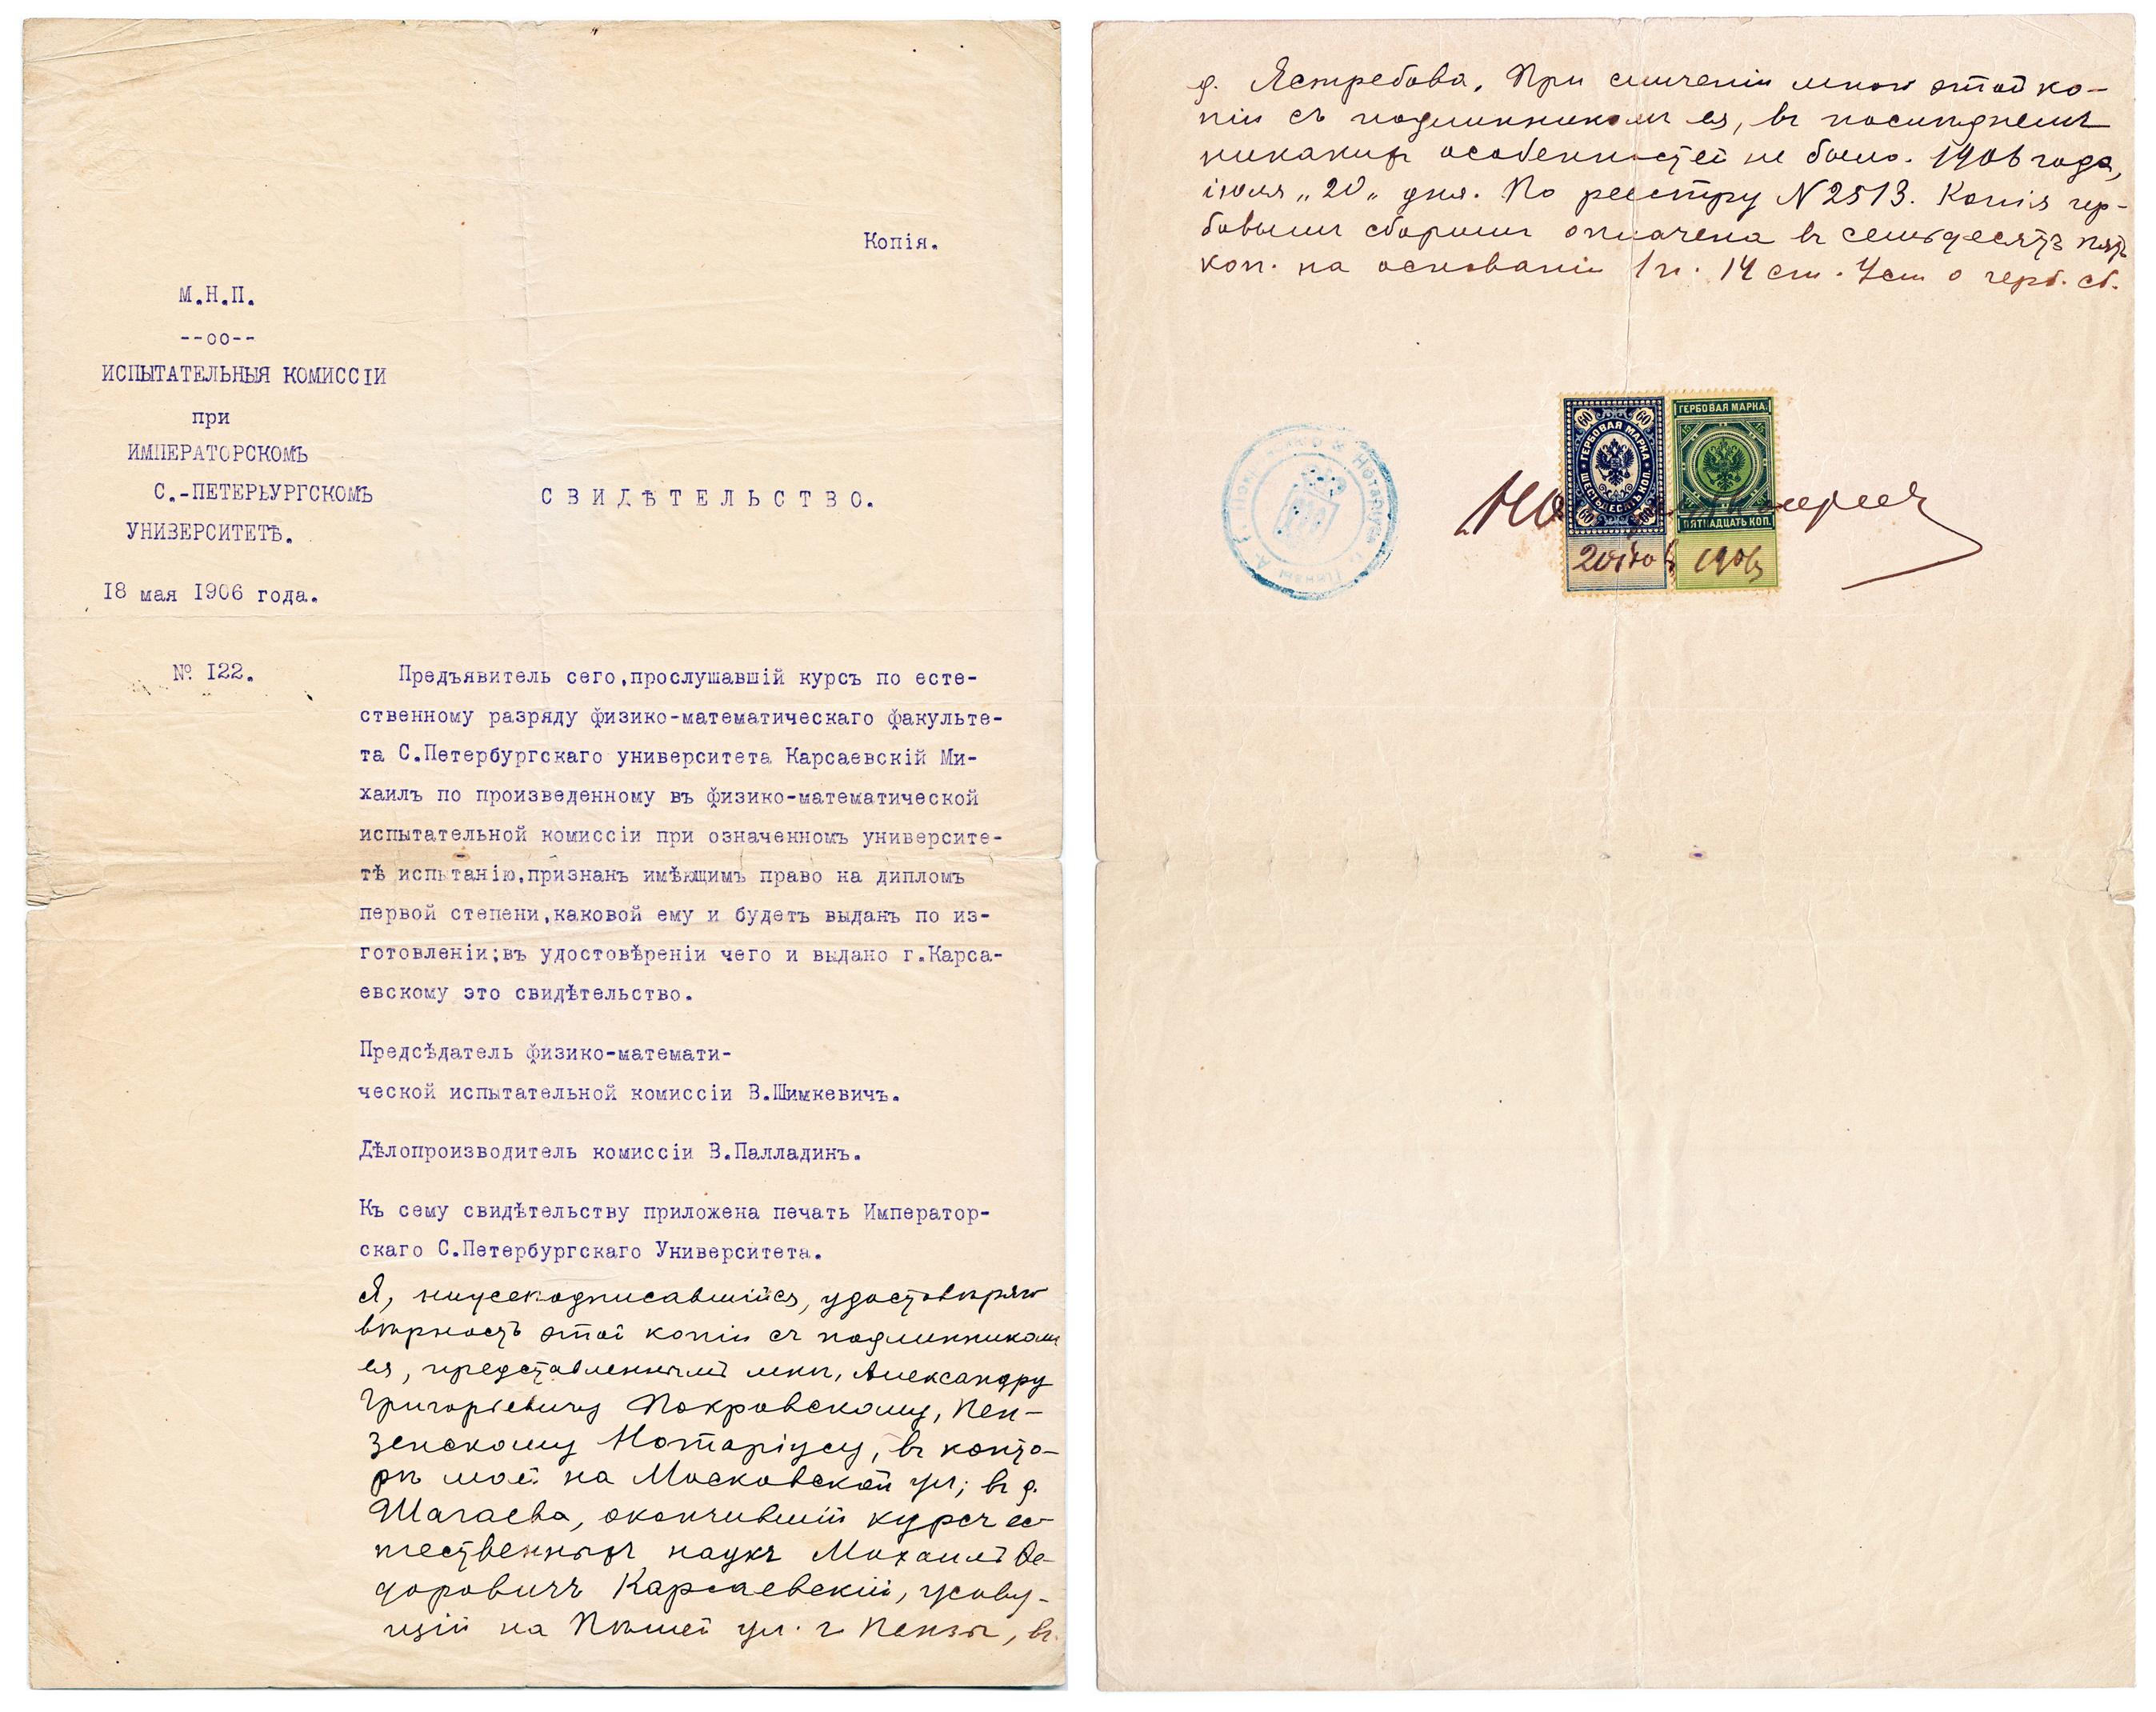 Копія.
М.Н.П.
--оо--
ИСПЫТАТЕЛЬНЫЯ КОМИССІИ
при
ИМПЕРАТОРСКОМЪ
С.-ПЕТЕРЬУРГСКОМЪ
УНИВЕРСИТЕТѢ.
СВИДѢТЕЛЬСТВО.
18 мая 1906 года.
№ 122.
Предъявитель сего,прослушавшій курсъ по есте-
ственному разряду физико-математическаго факульте-
та С.Петербургскаго университета Карсаевскій Ми-
хаилъ по произведенному въ физико-математической
испытательной комиссіи при означенномъ университе-
тѣ испытанію,признанъ имѣющимъ право на дипломъ
первой степени,каковой ему и будетъ выданъ по из-
готовленіи;въ удостовѣреніи чего и выдано г.Карса-
евскому это свидѣтельство.
Предсѣдатель физико-математи-
ческой испытательной комиссіи В.Шимкевичъ.
Дѣлопроизводитель комиссіи В.Палладинъ.
Къ сему свидѣтельству приложена печать Император-
скаго С.Петербургскаго Университета.
Я, нижеподписавшійся, удостовѣряю
вѣрность этой копіи съ подлинникомъ
ея, представленнымъ мнѣ, Александру
Григорьевичу Покровскому, Пен-
зенскому Нотаріусу, въ конто-
рѣ моей на Московской ул; въ д.
Шагаева, окончившій курсъ ес-
тественныхъ наукъ Михаилъ Фе-
доровичъ Карсаевскій, живу-
щій на Пѣшей ул. г. Пензы, въ
д. Ястребова. При сличеніи мною этой ко-
піи съ подлинникомъ ея, въ послѣднемъ
никакихъ особенностей не было. 1906 года,
іюля „20„ дня. По реестру N 2513. Копія гер-
бовымъ сборомъ оплачена въ семьдесятъ пять
коп. на основаніи 1 п. 14 ст. Уст о герб. сб.
60 60
ГЕРБОВАЯ МАРКА
ШЕСТЬДЕСЯТЪ КОП.
60 60
ГЕРБОВАЯ МАРКА.
15 15
ПЯТНАДЦАТЬ КОП.
1906
Нотаріуса г. Пензы А. Г. Покровскаго